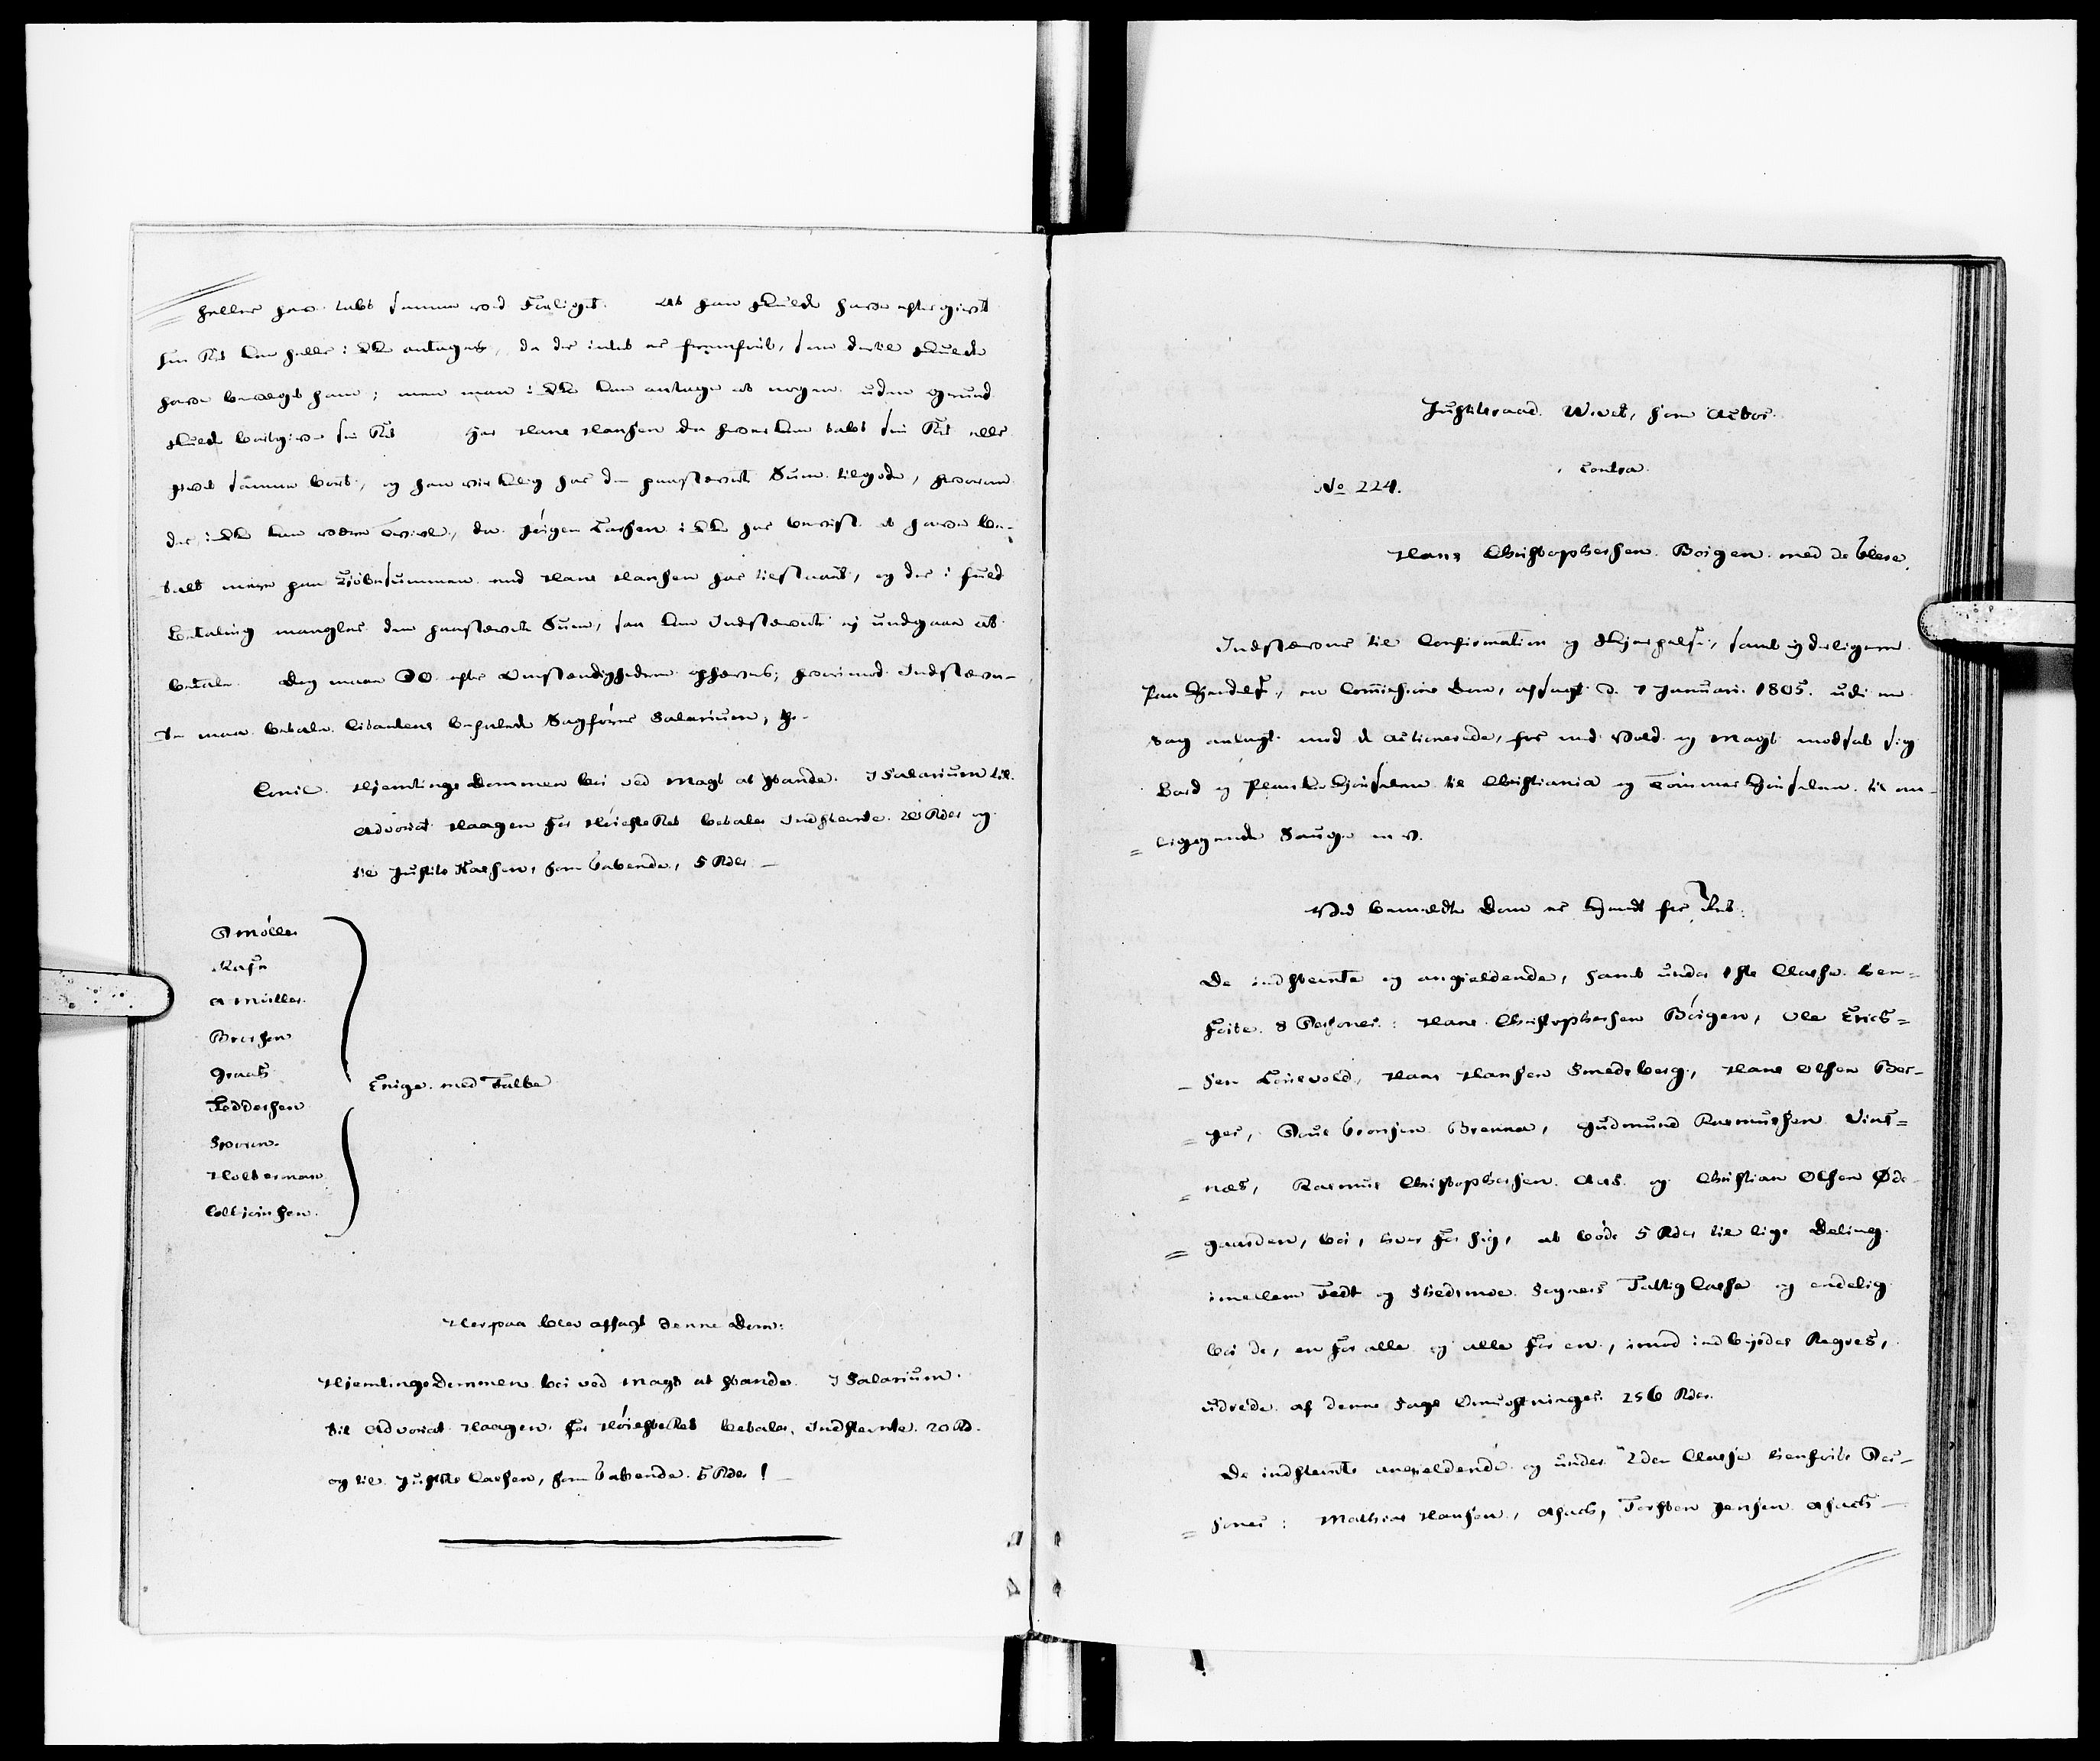 heller have tabt samme ved Forliget. At han skulde have eftergivet
sin Ret kan heller ikke antages, da der intet er fremført, som dertil skulde
have bevæget ham; men man ikke kan antage at nogen uden Grund
skulde bortgive sin Ret. Har Hans Hansen da hverken tabt sin Ret eller
givet samme bort, og han virkelig har den paastevnte Sum tilgode, hvorom
der ikke kan være Tvivl, da Jørgen Larsen ikke har beviist at have be-
talt mere paa Kiöbesummen end Hans Hansen har tilstaaet, og der i fuld
Betaling mangler den paastevnte Sum, saa kan Indstevnte ej undgaae at
betale. Dog maae DO efter Omstændighederne ophæves; hvorimod Indstevn-
te maae betale Citantens befalede Sagfører Salarium,
Concl. Hjemtings Dommen bör ved Magt at stande. I Salarium til
Advocat Haagen for Höieste Ret betaler Indstevnte 20 Rdr og
til Justits Kassen, som tabende, 5 Rdr. —
P Møller
Rafn
A Müller
Bruhn
Feddersen
Holterman
Colbiörnsen
Enige med Falbe
Herpaa blev afsagt denne Dom:
Hjemtings Dommen bör ved Magt at stande. I Salarium
til Advocat Haagen for Höieste Ret betaler Indstevnte 20 Rd.
og til Justits Cassen, som tabende 5 Rdr! —
Justitsraad Wivet, som Actor
contra
No 224.
Hans Christophersen Börgen med deblere.
Indstevner til Confirmation og Skjerpelse, samt yderligere
Paakjendelse, en Commissions Dom, afsagt d. 7 Januari 1805. udi en
Sag anlagt mod de Actionerede, for med Vold og Magt modsat sig
Bord og Planke Kjörselen til Christiania og Tömmer Kjörselen til om-
liggende Sauge m v.
Ved bemeldte Dom er kjendt for Ret:
De indstevnte og angieldende, samt under 1ste Classe hen-
förte 8 Personer: Hans Christophersen Börgen, Ole Erics-
sen Hans Hansen Smedsberg, Hans Olsen Ber-
ger, Brenna, Gudmund Rasmussen Vint-
næs, Rasmus Christophersen Aas og Christian Olsen Øde-
gaarden, bör, hver for sig, at böde 5 Rdr til lige Deling
imellem Fedt og Skedsmoe Sogners Fattig Casse og endelig
bör de, en for alle og alle for en, imod indbyrdes Regres,
udrede af denne Sags Omkostninger 256 Rdr.
De indstevnte angieldende og under 2den Classe henförte Per-
soner: Mathias Hansen, Asach, Torsten Jensen Asach